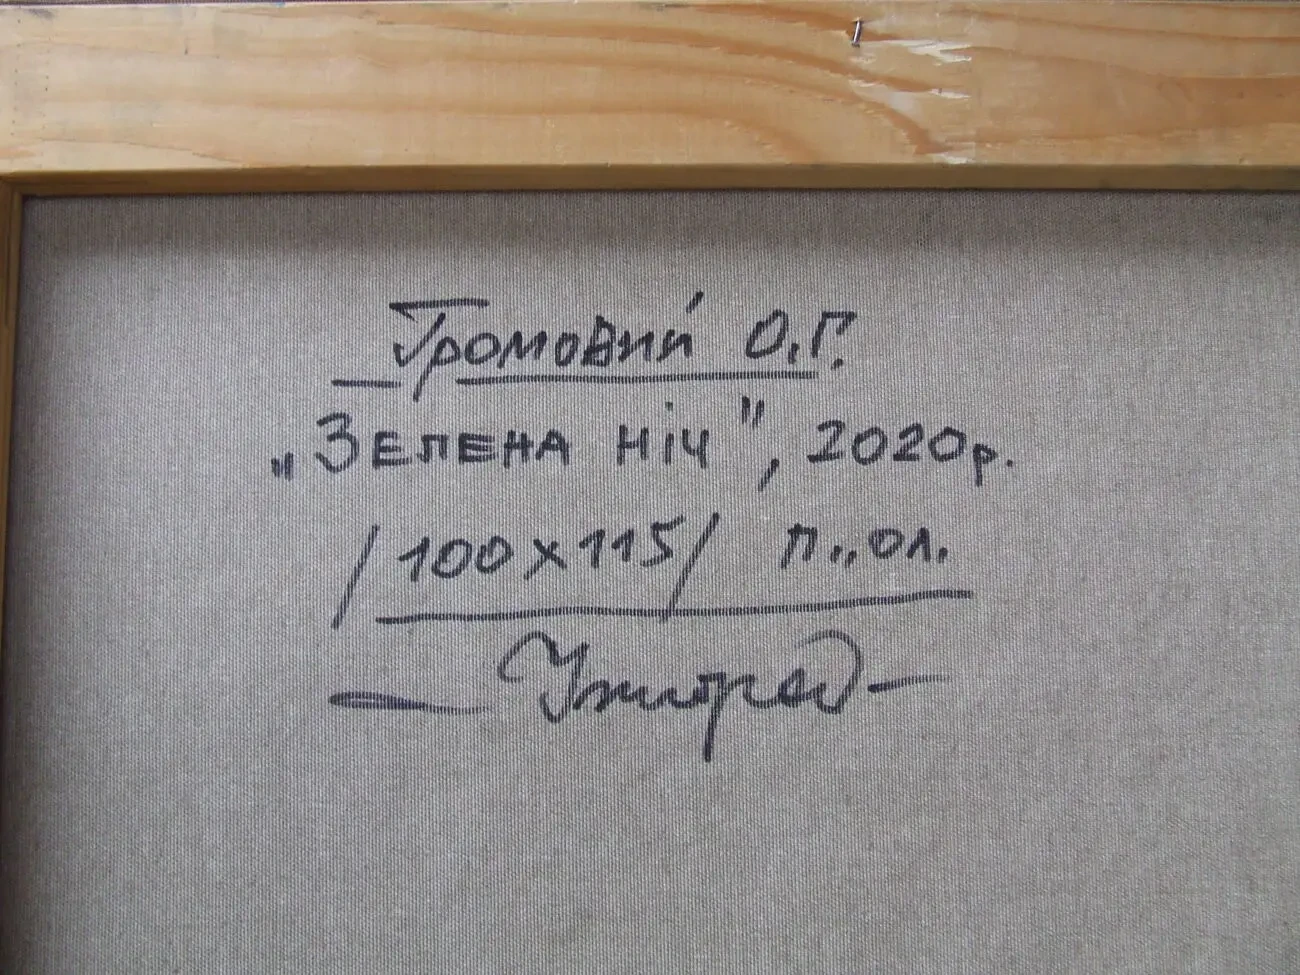 Громовий О.Г.
„Зелена ніч", 2020р.
/100х115/ п., ол.
— Ужгород —